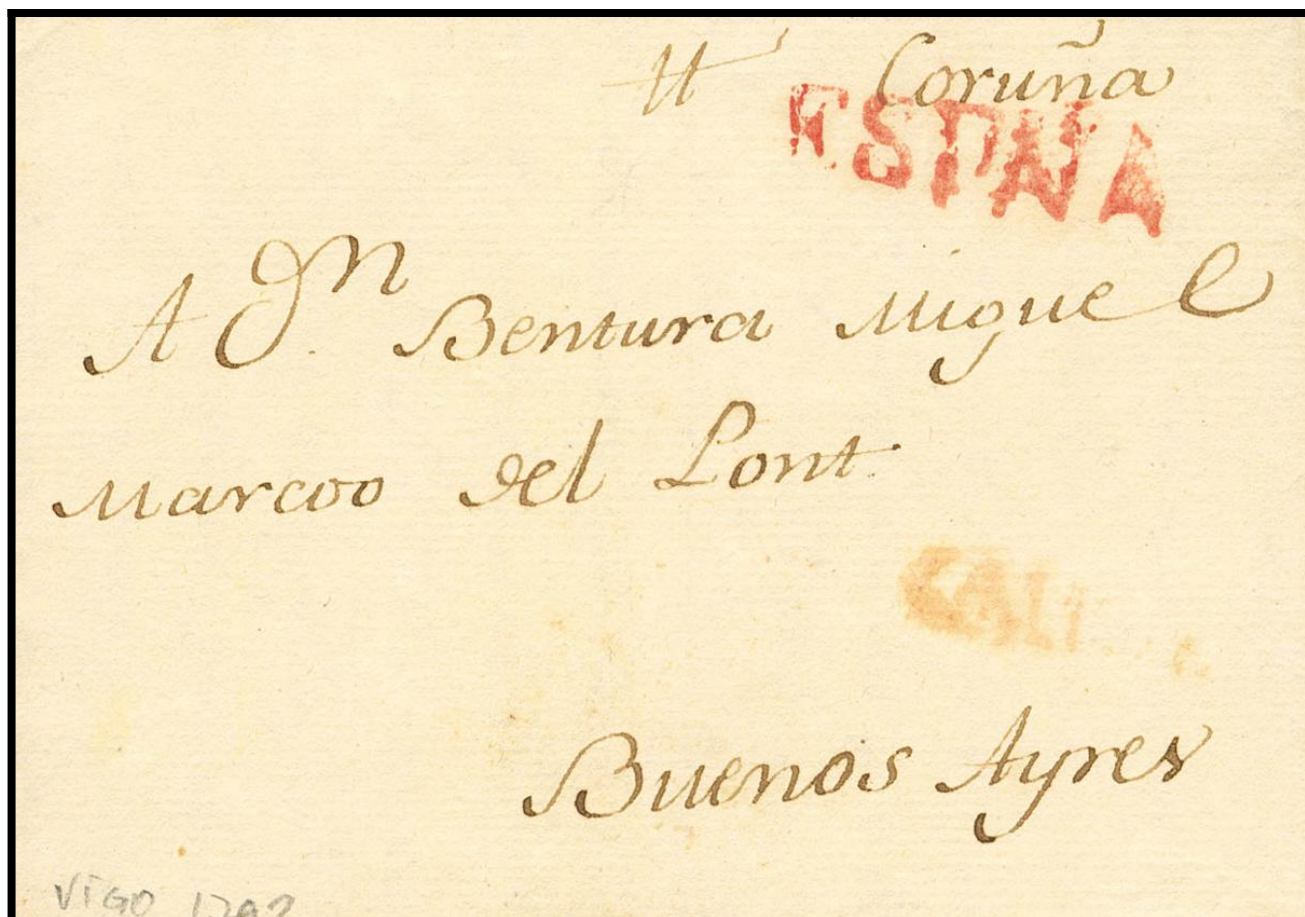 Coruña
ESPNA
A Dn. Bentura Miguel
Marcó del Pont
Buenos Ayres
VIGO